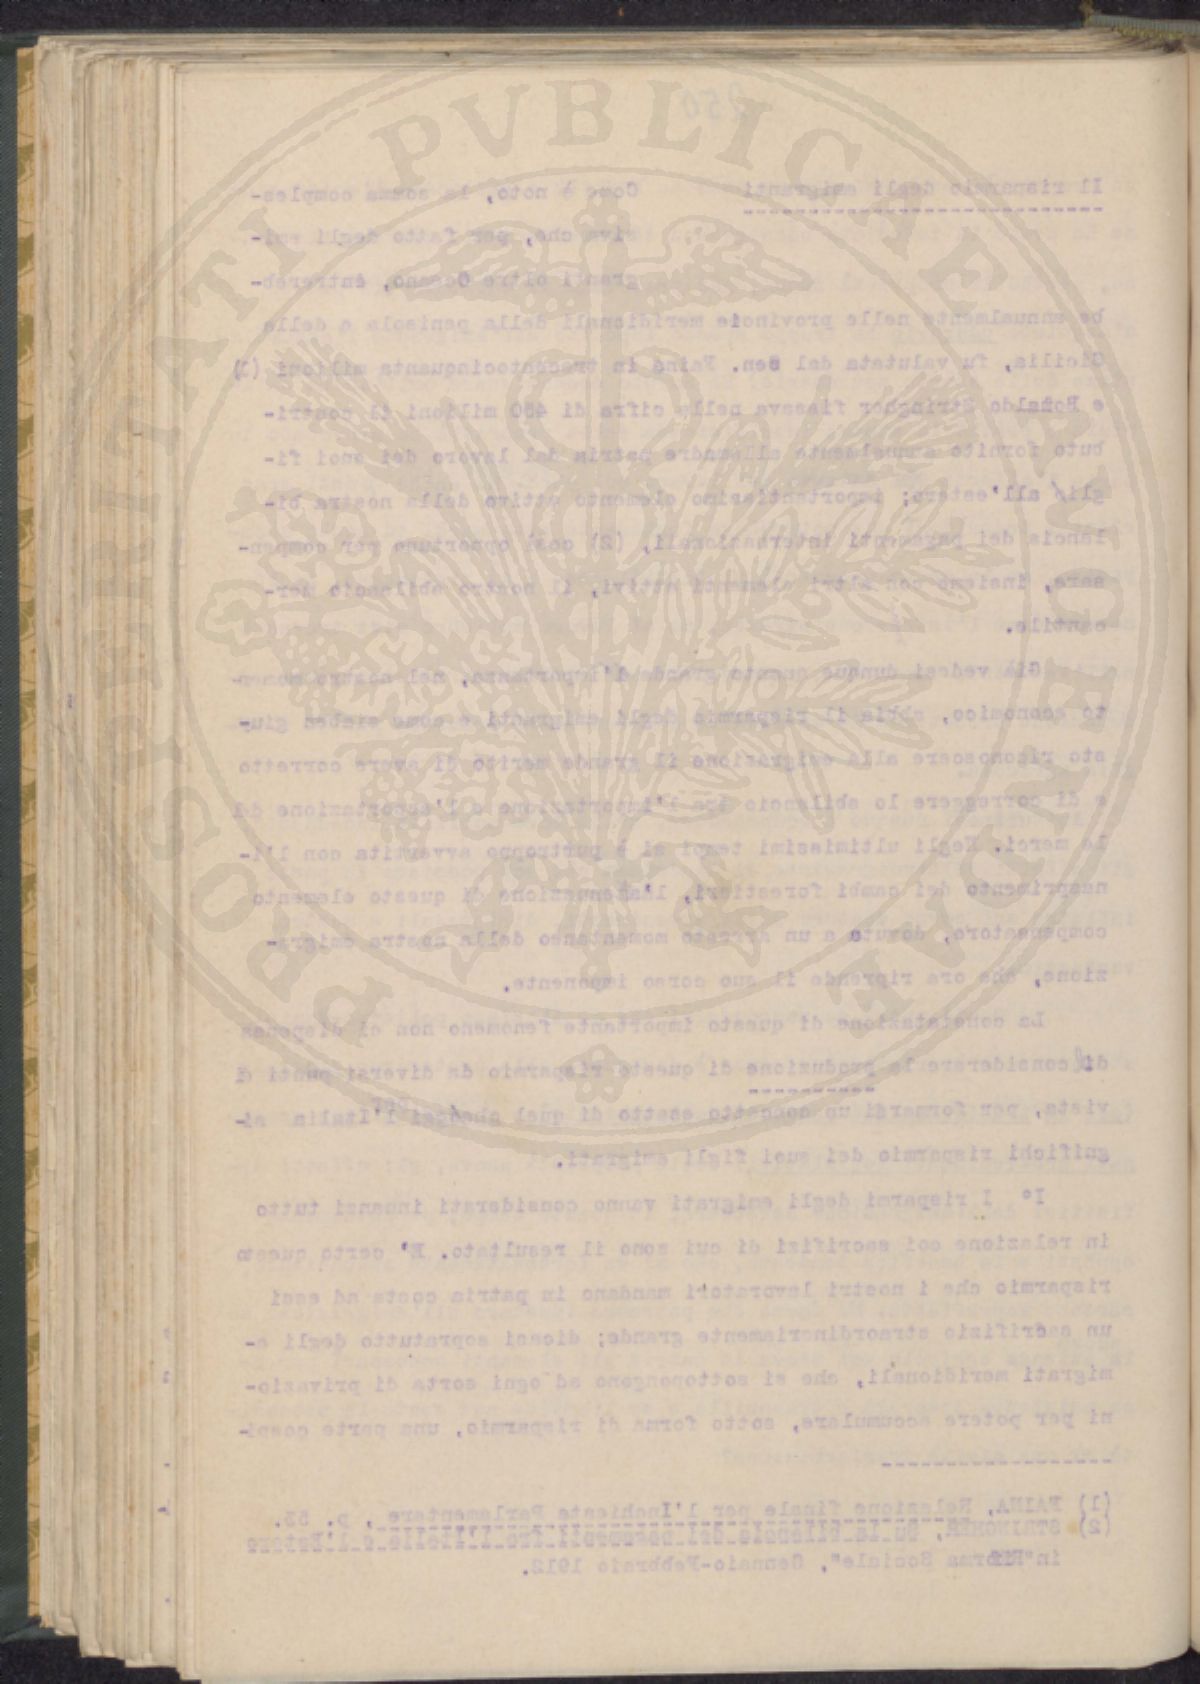 250
Il risparmio degli emigranti
Come è noto, la somma comples-
siva che, per fatto degli emi-
granti oltre Oceano, entrereb-
be annualmente nelle provincie meridionali della penisola e della
Sicilia, fu valutata dal Sen. Faina in trecentocinquanta milioni (1)
e Bonaldo Stringher fissava nella cifra di 450 milioni il contri-
buto fornito annualmente alla madre patria dal lavoro dei suoi fi-
gli all'estero; importantissimo elemento attivo della nostra bi-
lancia dei pagamenti internazionali, (2) così opportuno per compen-
sare, insieme con altri elementi attivi, il nostro sbilancio mer-
cantile.
Già vedesi dunque quanto grande d'importanza, nel nostro momen-
to economico, abbia il risparmio degli emigranti e come siaben giu-
sto riconoscere alla emigrazione il grande merito di avere corretto
e di correggere lo sbilancio fra l'importazione e l'esportazione del
le merci. Negli ultimissimi tempi si è purtroppo avvertita con l'i-
nasprimento dei cambi forestieri, l'attenuazione di questo elemento
compensatore, dovuta a un arresto momentaneo della nostra emigra-
zione, che ora riprende il suo corso imponente.
La constatazione di questo importante fenomeno non ci dispensa
di considerare la produzione di questo risparmio da diversi punti di
vista, per formarci un concetto esatto di quel che per l'Italia si-
gnifichi risparmio dei suoi figli emigrati.
I° I risparmi degli emigrati vanno considerati innanzi tutto
in relazione coi sacrifizi di cui sono il resultato. E' certo questo
risparmio che i nostri lavoratori mandano in patria costa ad essi
un sacrifizio straordinariamente grande; dicasi sopratutto degli e-
migrati meridionali, che si sottopongono ad ogni sorta di privazio-
ni per potere accumulare, sotto forma di risparmio, una parte cospi-
(1) FAINA, Relazione finale per l'Inchiesta Parlamentare, p. 53.
(2) STRINGHER, Su la bilancia dei pagamenti fra l'Italia e l'Estero
in "Riforma Sociale", Gennaio-Febbraio 1912.
PROSPERITATI PVBLICAE AVGENDAE